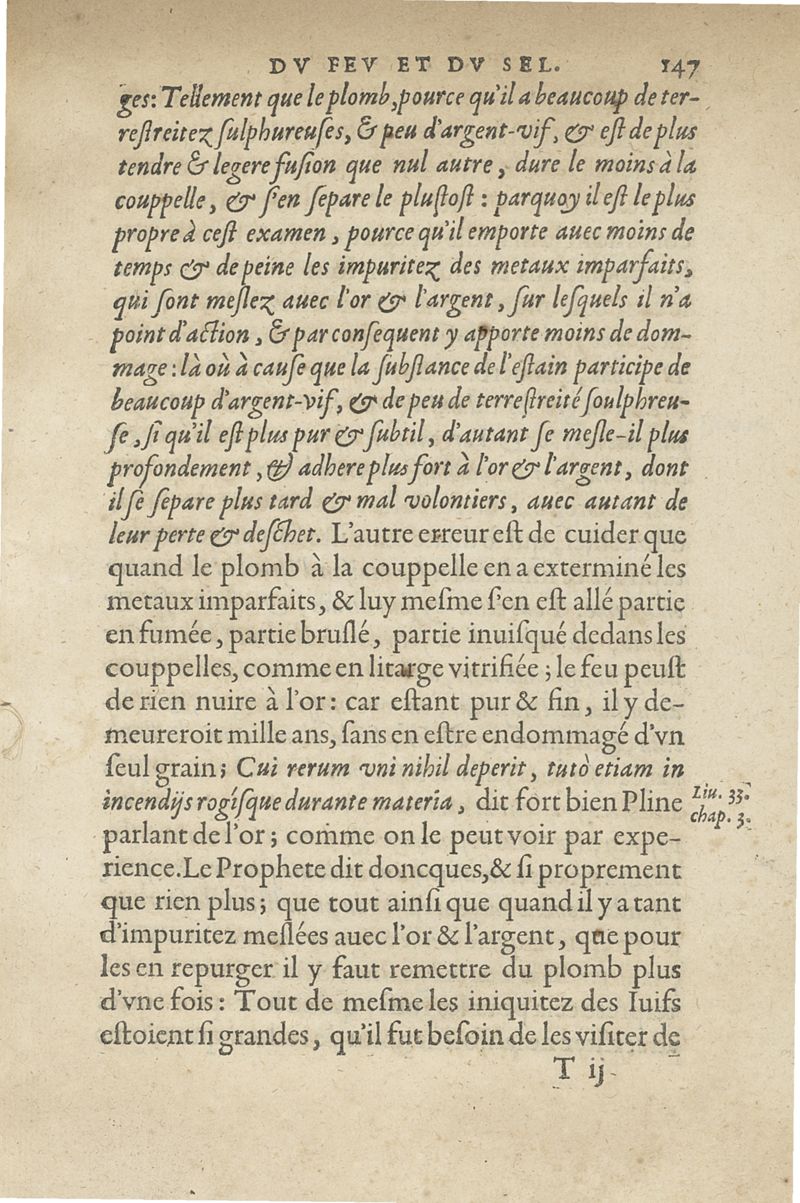 DV FEV ET DV SEL. 147
ges: Tellement que le plomb, pource qu'il a beaucoup de ter-
restreitez sulphureuſes, & peu d'argent-vif, & eſt de plus
tendre & legere fuſion que nul autre, dure le moins à la
couppelle, & ſ'en ſepare le pluſtoſt : parquoy il eſt le plus
propre à ceſt examen, pource qu'il emporte auec moins de
temps & de peine les impuritez des metaux imparfaits,
qui ſont meſlez auec l'or & l'argent, ſur leſquels il n'a
point d'action, & par conſequent y apporte moins de dom-
mage : là où à cauſe que la ſubſtance de l'eſtain participe de
beaucoup d'argent-vif, & de peu de terreſtreité ſoulphreu-
ſe, ſi qu'il eſt plus pur & ſubtil, d'autant ſe meſle-il plus
profondement, & adhere plus fort à l'or & l'argent, dont
il ſe ſepare plus tard & mal volontiers, auec autant de
leur perte & deſchet. L'autre erreur eſt de cuider que
quand le plomb à la couppelle en a exterminé les
metaux imparfaits, & luy meſme ſ'en eſt allé partie
en fumée, partie bruſlé, partie inuiſqué dedans les
couppelles, comme en litarge vitrifiée ; le feu peuſt
de rien nuire à l'or : car eſtant pur & fin, il y de-
meureroit mille ans, ſans en eſtre endommagé d'vn
ſeul grain; Cui rerum vni nihil deperit, tutò etiam in
incendijs rogiſque durante materia, dit fort bien Pline
Liu. 33.
chap. 3.
parlant de l'or ; comme on le peut voir par expe-
rience. Le Prophete dit doncques, & ſi proprement
que rien plus; que tout ainſi que quand il y a tant
d'impuritez meſlées auec l'or & l'argent, que pour
les en repurger il y faut remettre du plomb plus
d'vne fois : Tout de meſme les iniquitez des Iuifs
eſtoient ſi grandes, qu'il fut beſoin de les viſiter de
T ij